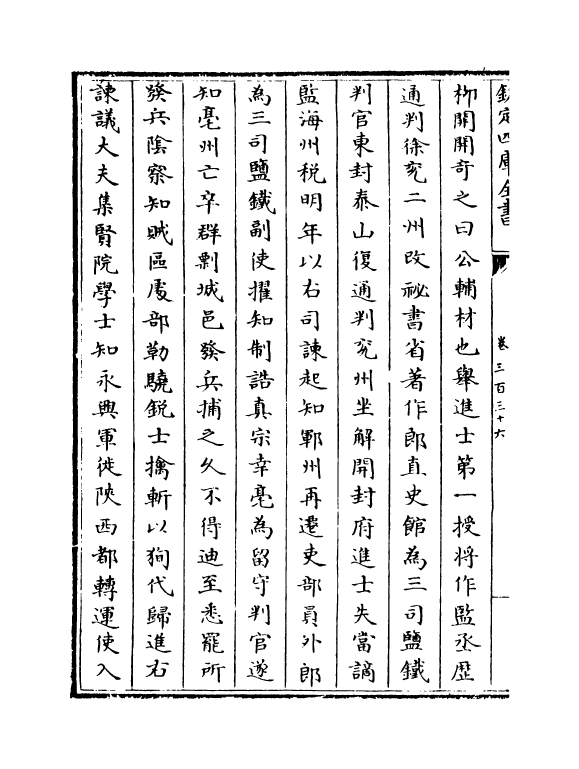 欽定四庫全書
卷三百三十六
柳開開奇之曰公輔材也舉進士第一授將作監丞歷
通判徐兖二州改祕書省著作郎直史館為三司鹽鐵
判官東封泰山復通判兖州坐解開封府進士失當謫
監海州税明年以右司諫起知鄆州再遷吏部員外郎
為三司鹽鐵副使擢知制誥真宗幸亳為留守判官遂
知亳州亡卒群剽城邑發兵捕之久不得迪至悉罷所
發兵隂察知賊區處部勒驍鋭士擒斬以狥代歸進右
諫議大夫集賢院學士知永興軍徙陜西都轉運使入